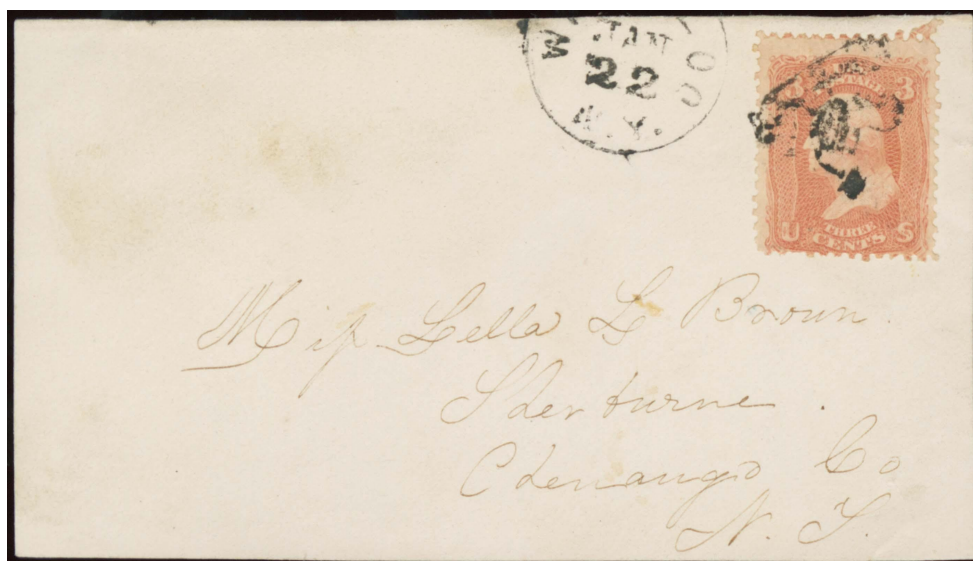 JAN
22
N.Y.
3 3
U S
THREE
CENTS
Miss Lella L Brown.
Sherburne.
Chenango Co
N. Y.